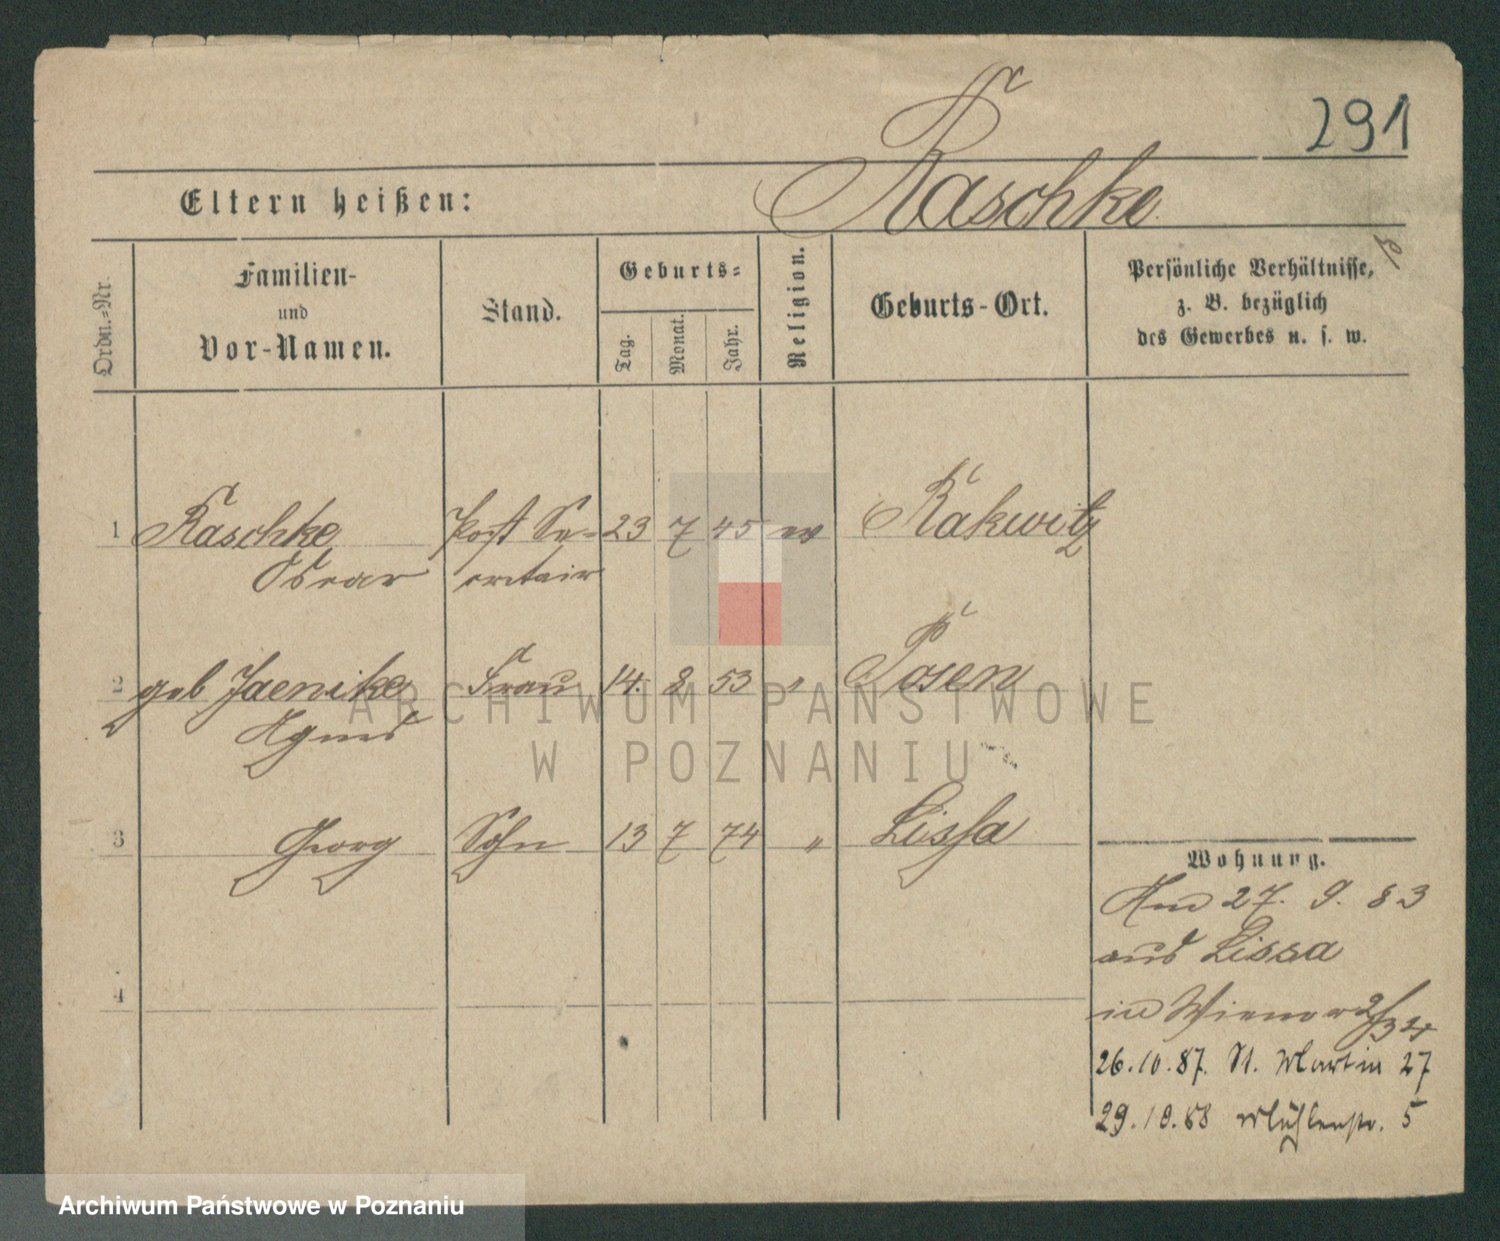 291
Raschke
Eltern heißen:
Ordn.=Nr.
Familien-
und
Vor-Namen.
Stand.
Geburts=
Tag.
Monat.
Jahr.
Religion.
Geburts-Ort.
Persönliche Verhältnisse,
z. B. bezüglich
des Gewerbes u. s. w.
1 Raschke Post Se= 23 7 45 ev Rakwitz
Oscar cretair
2 geb Jaenike Frau 14. 8 53 " Posen
Agnes
3 Georg Sohn 13 7 74 " Lissa
4
Wohnung.
27. 9. 83
aus Lissa
26.10.87. St. Martin 27
29.10.88 Mühlenstr. 5
ARCHIWUM PAŃSTWOWE
W POZNANIU
Archiwum Państwowe w Poznaniu